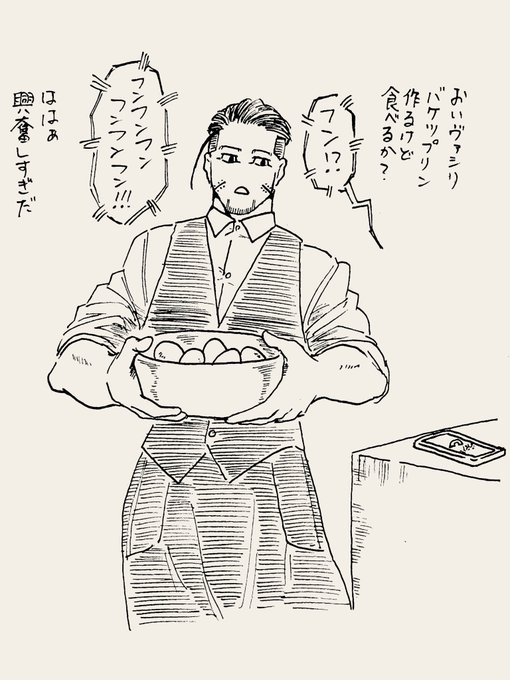 おいヴァシリ
バケツプリン
作るけど
食べるか?
フン!?
フンフンフン
フンフンフン!!!
ははぁ
興奮しすぎだ